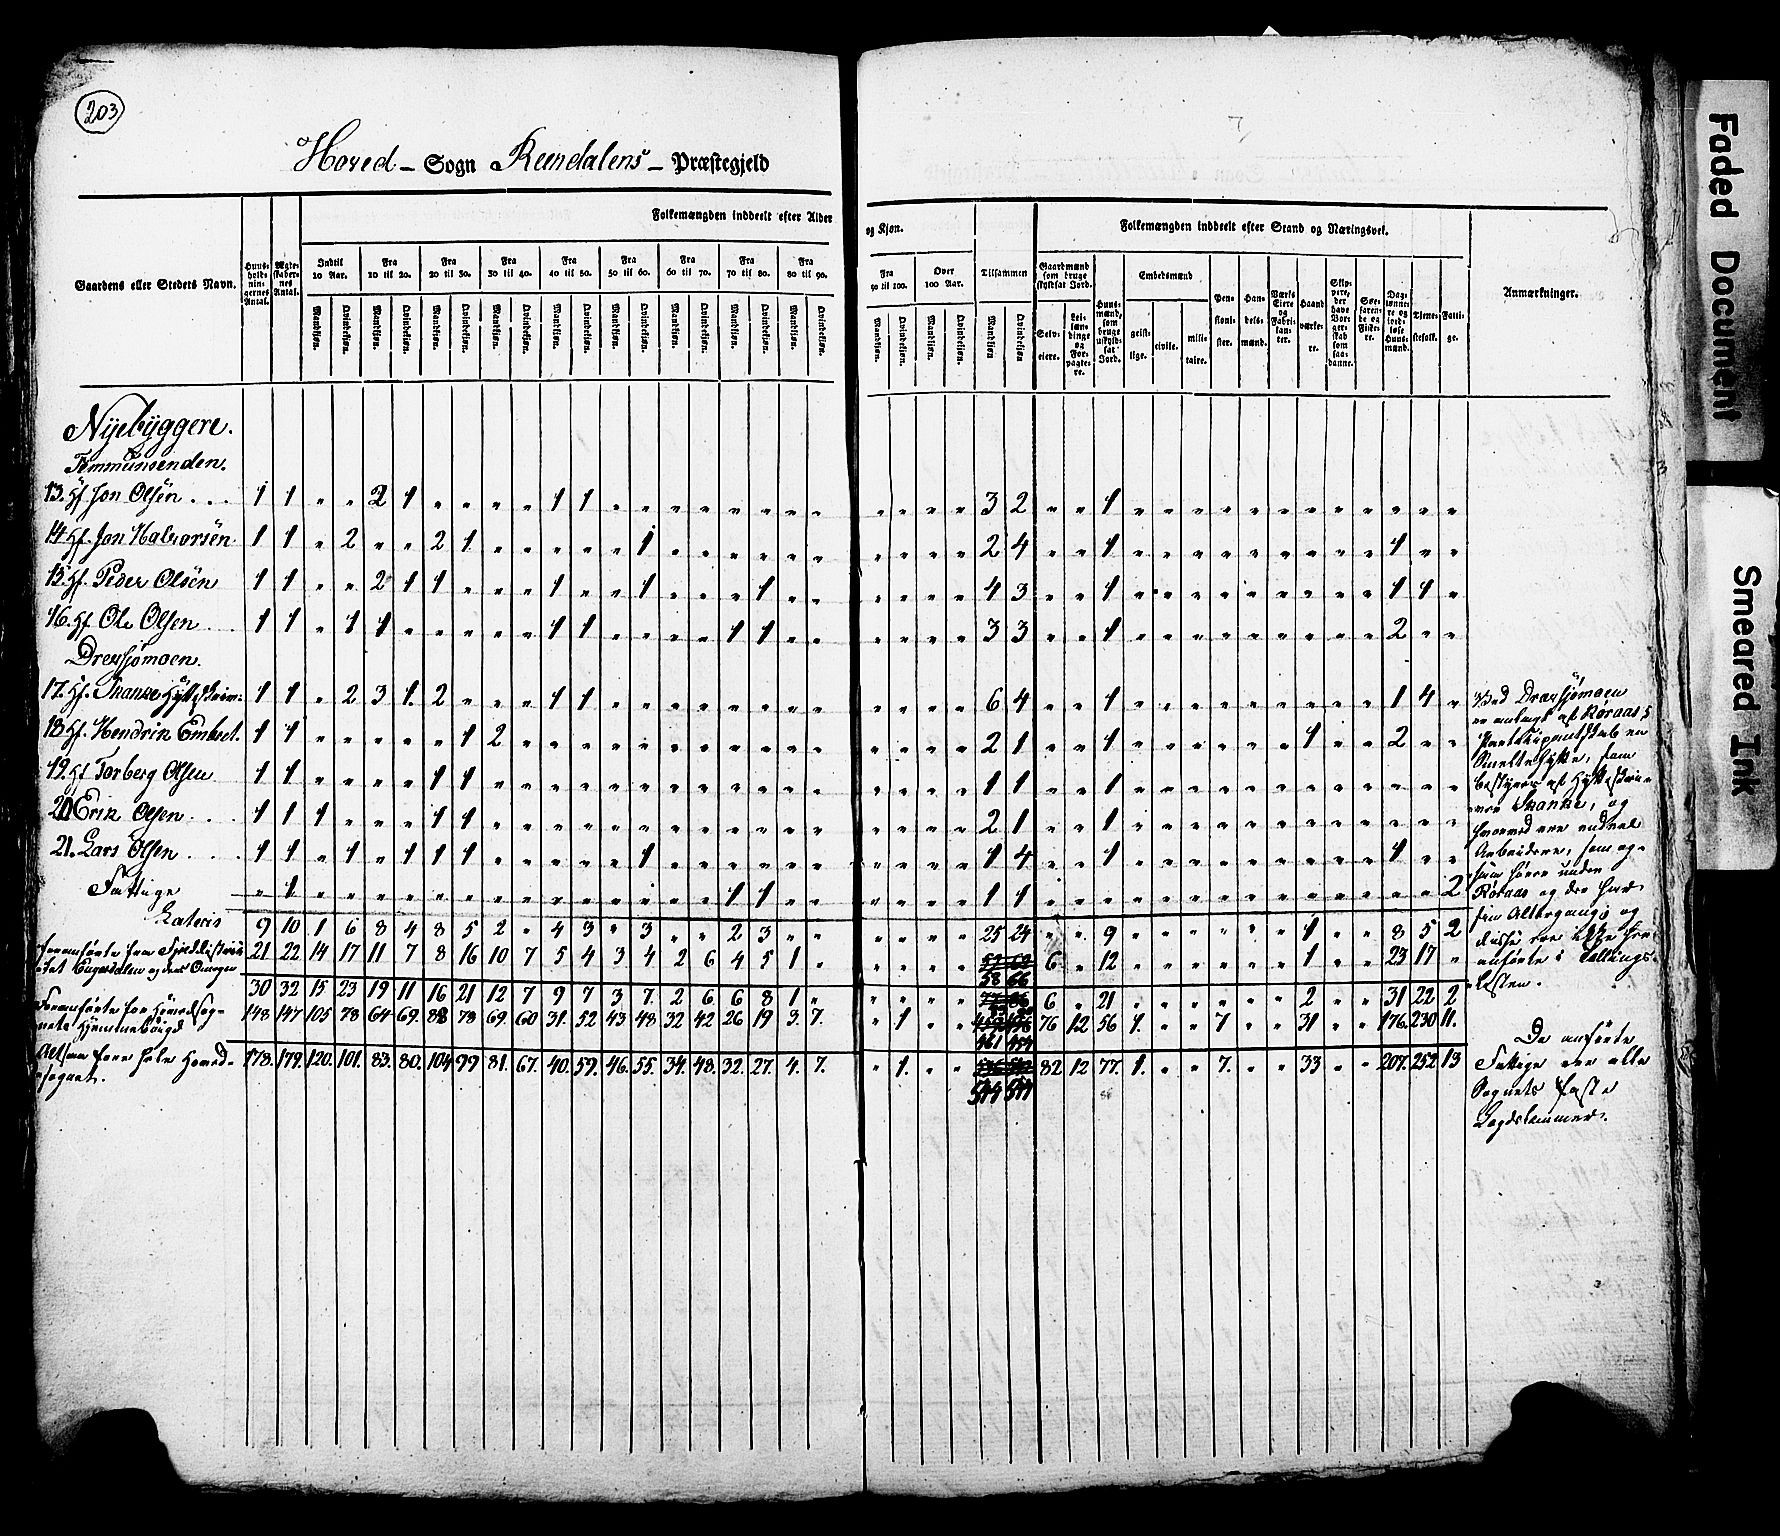 203
Hoved - Sogn Rendalens - Præstegjeld
Folkemængden inddeelt efter Alder
og Kjøn.
Folkemængden inddeelt efter Stand og Næringsvei.
Gaardens eller Stedets Navn.
Huusholdningernes Antal.
Ægteskabernes Antal.
Indtil 10 Aar.
Fra 10 til 20.
Fra 20 til 30.
Fra 30 til 40.
Fra 40 til 50.
Fra 50 til 60.
Fra 60 til 70.
Fra 70 til 80.
Fra 80 til 90.
Fra 90 til 100.
Over 100 Aar.
Tilsammen
Mandkjøn. Qvindekjøn.
Gaardmænd som bruge skyldsat Jord.
Selveiere.
Leilændinge og Forpagtere.
Huusmænd, som bruge uskyldsat Jord.
Embedsmænd
geistlige.
civile.
militaire.
Pensionister.
Handelsmænd.
Værks Eiere og Fabrikanter.
Haandværkere.
Skippere, der have Borgerskab som saadanne.
Søefarende og Fiskere.
Daglønnere og jordløse Huusmænd.
Tjenestefolk.
Fattige.
Anmærkninger.
Nÿebÿggere.
Femmunsenden.
13. Hf. Jon Olsen . . . 1 1 „ „ 2 1 „ „ „ „ 1 1 „ „ „ „ „ „ „ „ „ „ „ „ 3 2 „ „ 1 „ „ „ „ „ „ „ „ „ „ „ „
14. Hf. Jon Halvorsen 1 1 „ 2 „ „ 2 1 „ „ „ „ „ 1 „ „ „ „ „ „ „ „ „ „ 2 4 „ „ 1 „ „ „ „ „ „ „ „ „ 1 „ „
15. Hf. Peder Olsen 1 1 „ „ 2 1 1 „ „ „ 1 „ „ 1 „ „ „ 1 „ „ „ „ „ „ 4 3 „ „ 1 „ „ „ „ „ „ „ „ „ 1 1 „
16. Hf. Ole Olsen 1 1 „ 1 1 „ „ „ „ „ 1 1 „ „ „ „ 1 1 „ „ „ „ „ „ 3 3 „ „ 1 „ „ „ „ „ „ „ „ „ 2 „ „
Drevsjømoen.
17. Hf. Skanke Hytteskriv: 1 1 „ 2 3 1 2 „ „ „ 1 1 „ „ „ „ „ „ „ „ „ „ „ „ 6 4 „ „ 1 „ „ „ „ „ „ „ „ „ 1 4 „
18. Hf. Hendrik Embret. 1 1 „ „ „ „ „ 1 2 „ „ „ „ „ „ „ „ „ „ „ „ „ „ „ 2 1 „ „ 1 „ „ „ „ „ „ 1 „ „ 2 „ „
19. Hf Torberg Olsen 1 1 „ „ „ „ 1 1 „ „ „ „ „ „ „ „ „ „ „ „ „ „ „ „ 1 1 „ „ 1 „ „ „ „ „ „ „ „ „ „ „ „
20 Erik Olsen . . . 1 1 1 „ „ „ 1 1 „ „ „ „ „ „ „ „ „ „ „ „ „ „ „ „ 2 1 „ „ 1 „ „ „ „ „ „ „ „ „ „ „ „
21. Lars Olsen . . . 1 1 „ 1 „ 1 1 1 „ „ „ „ „ 1 „ „ „ „ „ „ „ „ „ „ 1 4 „ „ 1 „ „ „ „ „ „ „ „ „ 1 „ „
Fattige „ 1 „ „ „ „ „ „ „ „ „ „ „ „ „ „ 1 1 „ „ „ „ „ „ 1 1 „ „ „ „ „ „ „ „ „ „ „ „ „ „ 2
Lateris 9 10 1 6 8 4 8 5 2 „ 4 3 „ 3 „ „ 2 3 „ „ „ „ „ „ 25 24 „ „ 9 „ „ „ „ „ „ 1 „ „ 8 5 2
21 22 14 17 11 7 8 16 10 7 5 4 3 4 2 6 4 5 1 „ „ „ „ „ 6 „ 12 „ „ „ „ „ „ 1 „ „ 23 17 „
58 66
30 32 15 23 19 11 16 21 12 7 9 7 3 7 2 6 6 8 1 „ „ „ „ „ 6 „ 21 „ „ „ „ „ „ 2 „ „ 31 22 2
148 147 105 78 64 69. 88 78 69. 60 31. 52 43 48 32 42 26 19 3. 7. „ 1 „ „ 76 12 56 1. „ „ 7 „ „ 31 „ „ 176. 230 11.
461 454
Altsaa for hele Hoved-
sognet. 178. 179. 120. 101. 83. 80. 104 99 81. 67. 40. 59. 46. 55. 34. 48. 32. 27. 4. 7. „ 1. „ „ 82 12 77. 1. „ „ 7. „ „ 33 „ „ 207. 252 13
544 544
Ved Drevsjømoen
er anlagt af Røraas's
Participantskab en
Smeltehytte, som
bestyres af Hytteskriv-
er Skanke, og
hvorved ere endeel
Arbeidere, som og-
saa høre under
Røraas og der har
sin Altergang; og
disse ere ikke
anførte i Tællings-
listen.
De anførte
Fattige ere alle
Sognets faste
Lagdslemmer.
Faded Document
Smeared Ink